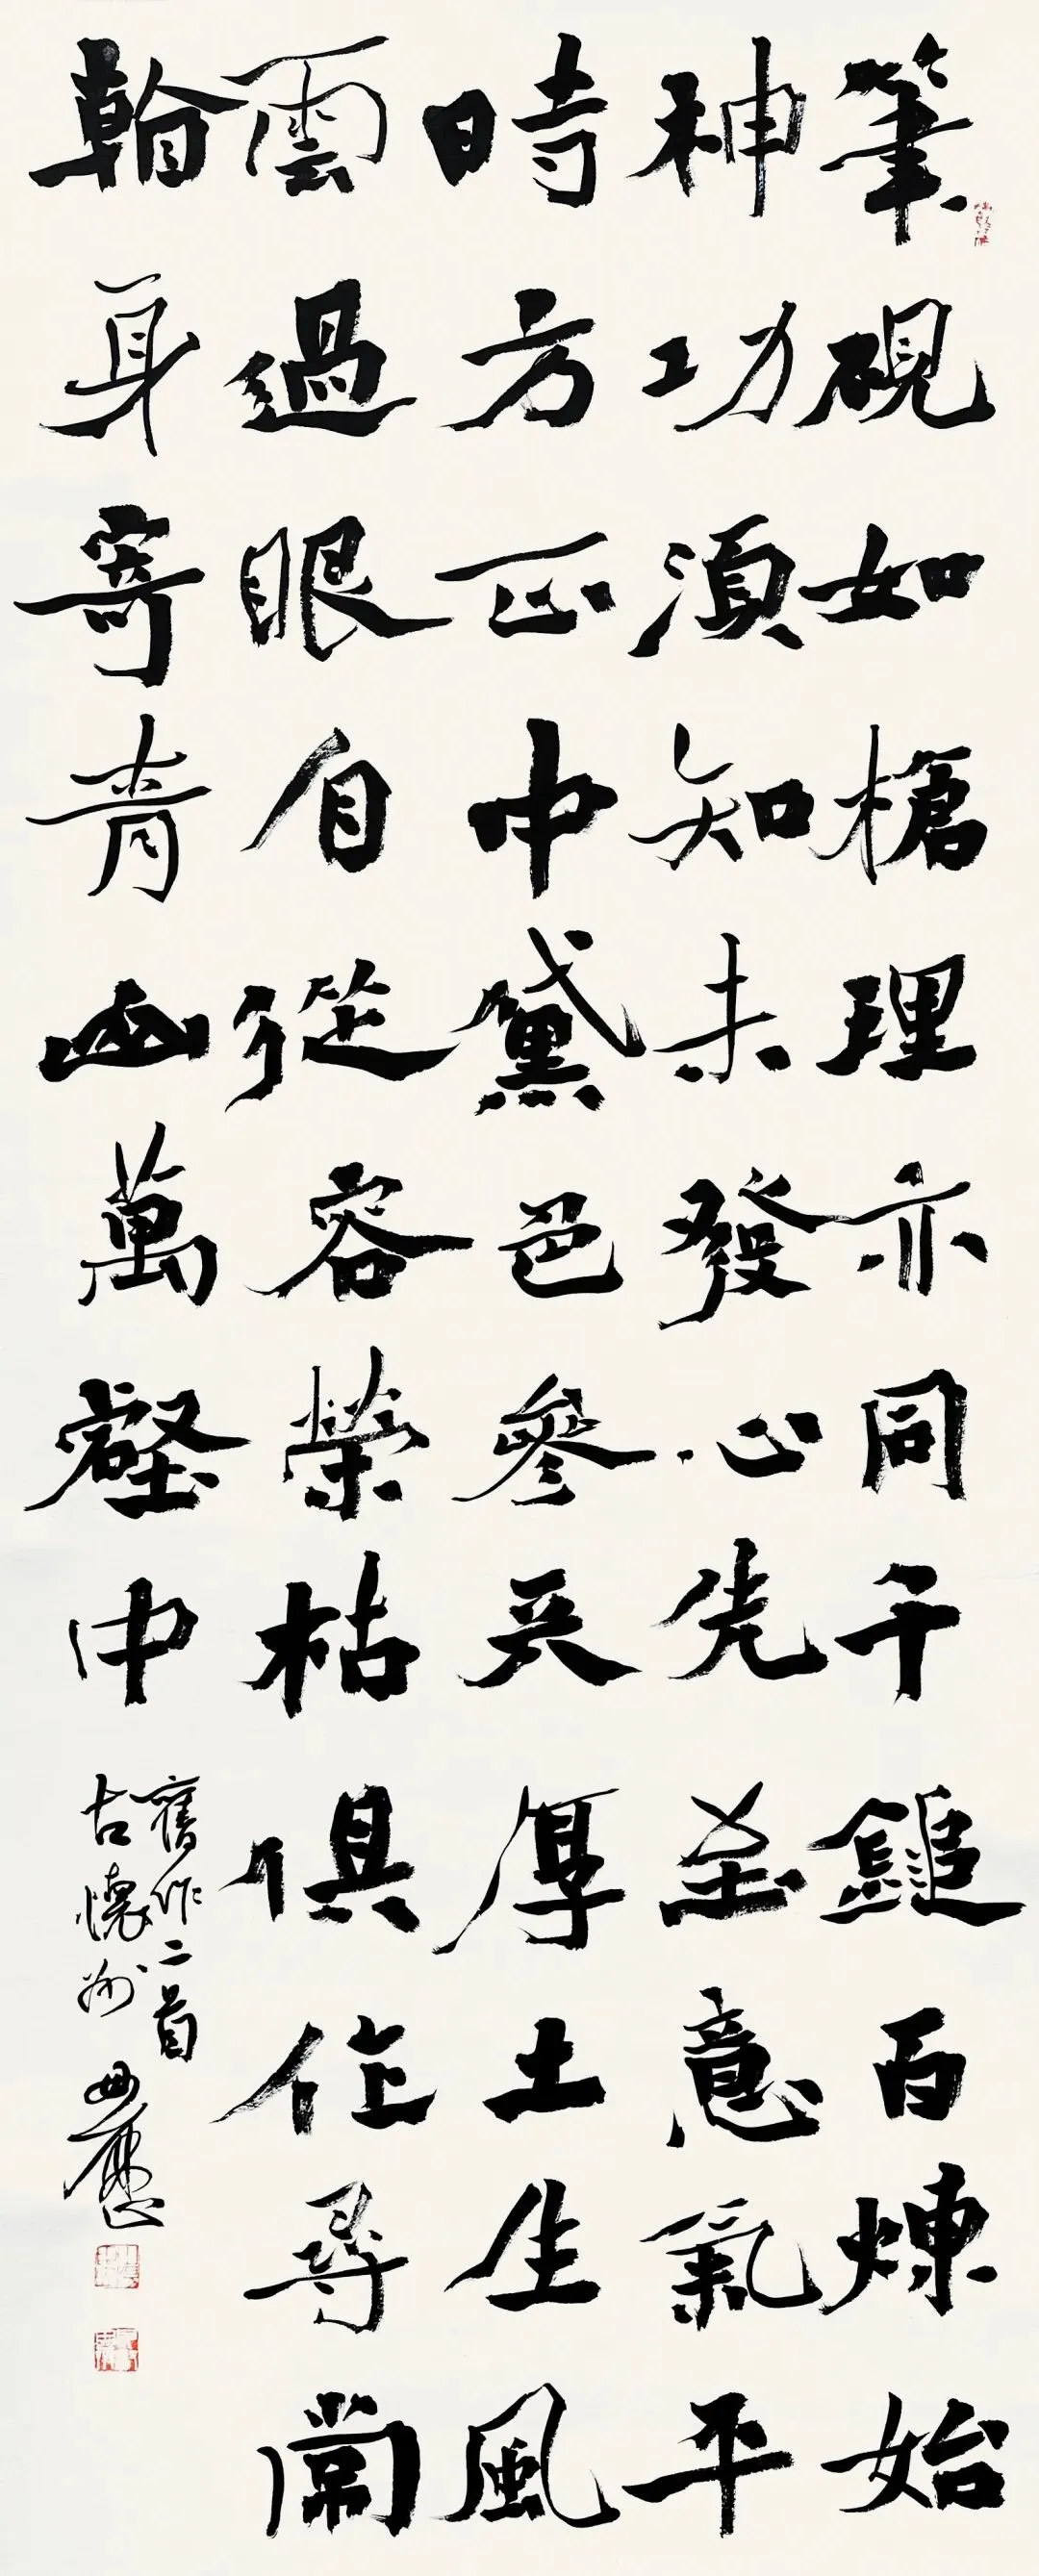 筆硯如槍理亦同千鎚百煉始
神功須知未發心先至意氣平
時方正中黛色參天厚土生風
雲過眼自從容榮枯俱作尋常
翰身寄青山萬壑中
舊作二首
古懷州